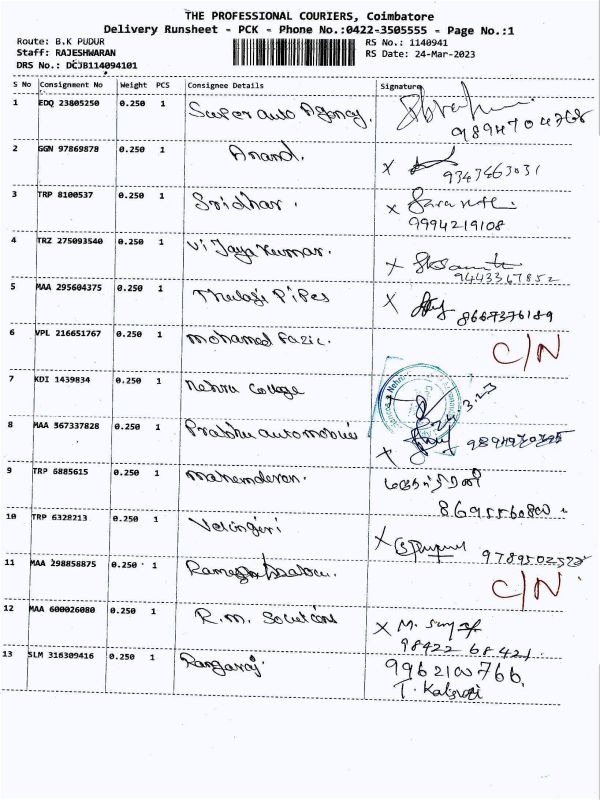 THE PROFESSIONAL COURIERS, Coimbatore
Delivery Runsheet - PCK - Phone No.:0422-3505555 - Page No.:1
Route: B.K PUDUR
RS No.: 1140941
Staff: RAJESHWARAN
RS Date: 24-Mar-2023
DRS No.: DCJB114094101
S No Consignment No Weight PCS Consignee Details Signature
1 EDQ 23805250 0.250 1 Super auto Agency.
9894704768
2 GGN 97869878 0.250 1 Anand. X
9347463031
3 TRP 8100537 0.250 1 Sridhar. X
9994219108
4 TRZ 275093540 0.250 1 Vijayakumar. X
9443367852
5 MAA 295604375 0.250 1 Thulasi Pipes X
8667376189
6 VPL 216651767 0.250 1 mohamed Fazic. C/N
7 KDI 1439834 0.250 1 Nehru College
24.3.23
8 MAA 567337828 0.250 1 Prabhu automobiles X
9 TRP 6885615 0.250 1 mahendevan.
8695560800
10 TRP 6328213 0.250 1 Velingiri X
9789502522
11 MAA 298858875 0.250 1 C/N
12 MAA 600026080 0.250 1 R.m. Solutions X M.
98422 68421
13 SLM 316309416 0.250 1 Rangaraj. 9962100766
T.